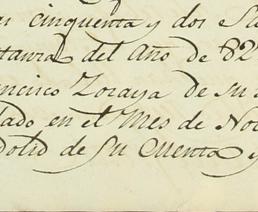 cinquenta y dos
del Año de 82
ncisco Zoraya de su
ado en el Mes de No
dolid de Su Cuenta y